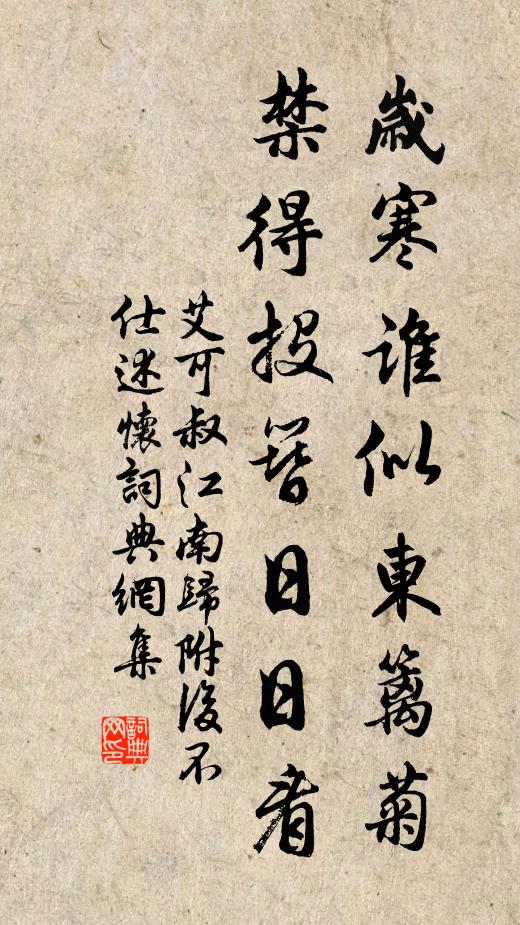 歲寒誰似東籬菊
禁得投簪日日看
艾可叔江南歸附後不
仕述懷詞典網集
詞典
网印